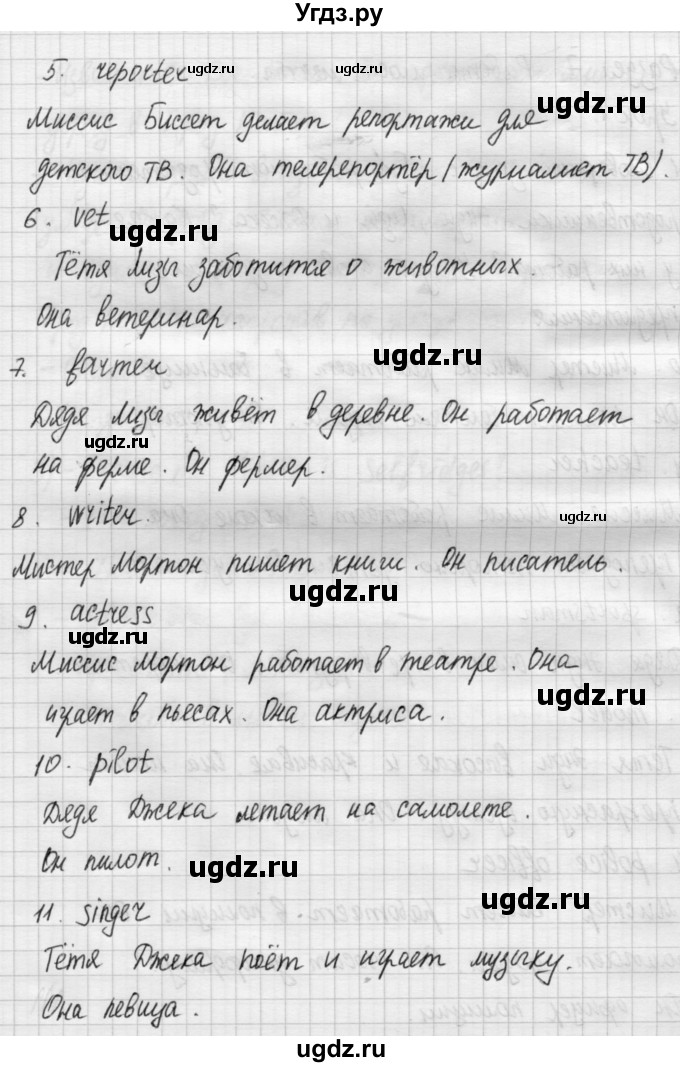 Угдз.ру
5. reporter ugdz.ru ugdz.ru
Миссис Биссет делает репортажи для ugdz.ru
детского ТВ. Она телерепортёр (журналист ТВ).
6. vet ugdz.ru
Тётя Лизы заботится о животных.
Она ветеринар.
7. farmer ugdz.ru
Дядя Лизы живёт в деревне. Он работает
ugdz.ru
на ферме. Он фермер.
8. writer. ugdz.ru
Мистер Мортон пишет книги. Он писатель.
ugdz.ru
9. actress
ugdz.ru
Миссис Мортон работает в театре. Она
играет в пьесах. Она актриса. ugdz.ru
10. pilot
Дядя Джека летает на самолете.
Он пилот. ugdz.ru
11. singer ugdz.ru
Тётя Джека поёт и играет музыку.
Она певица.
ugdz.ru